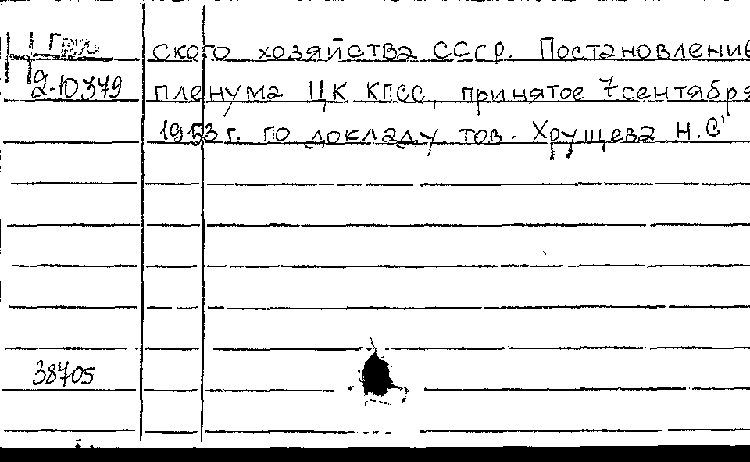 ского хозяйства СССР. Постановление
2-10379 пленума ЦК КПСС, принятое 7 сентября
1953 г. по докладу тов. Хрущева Н.С
38705